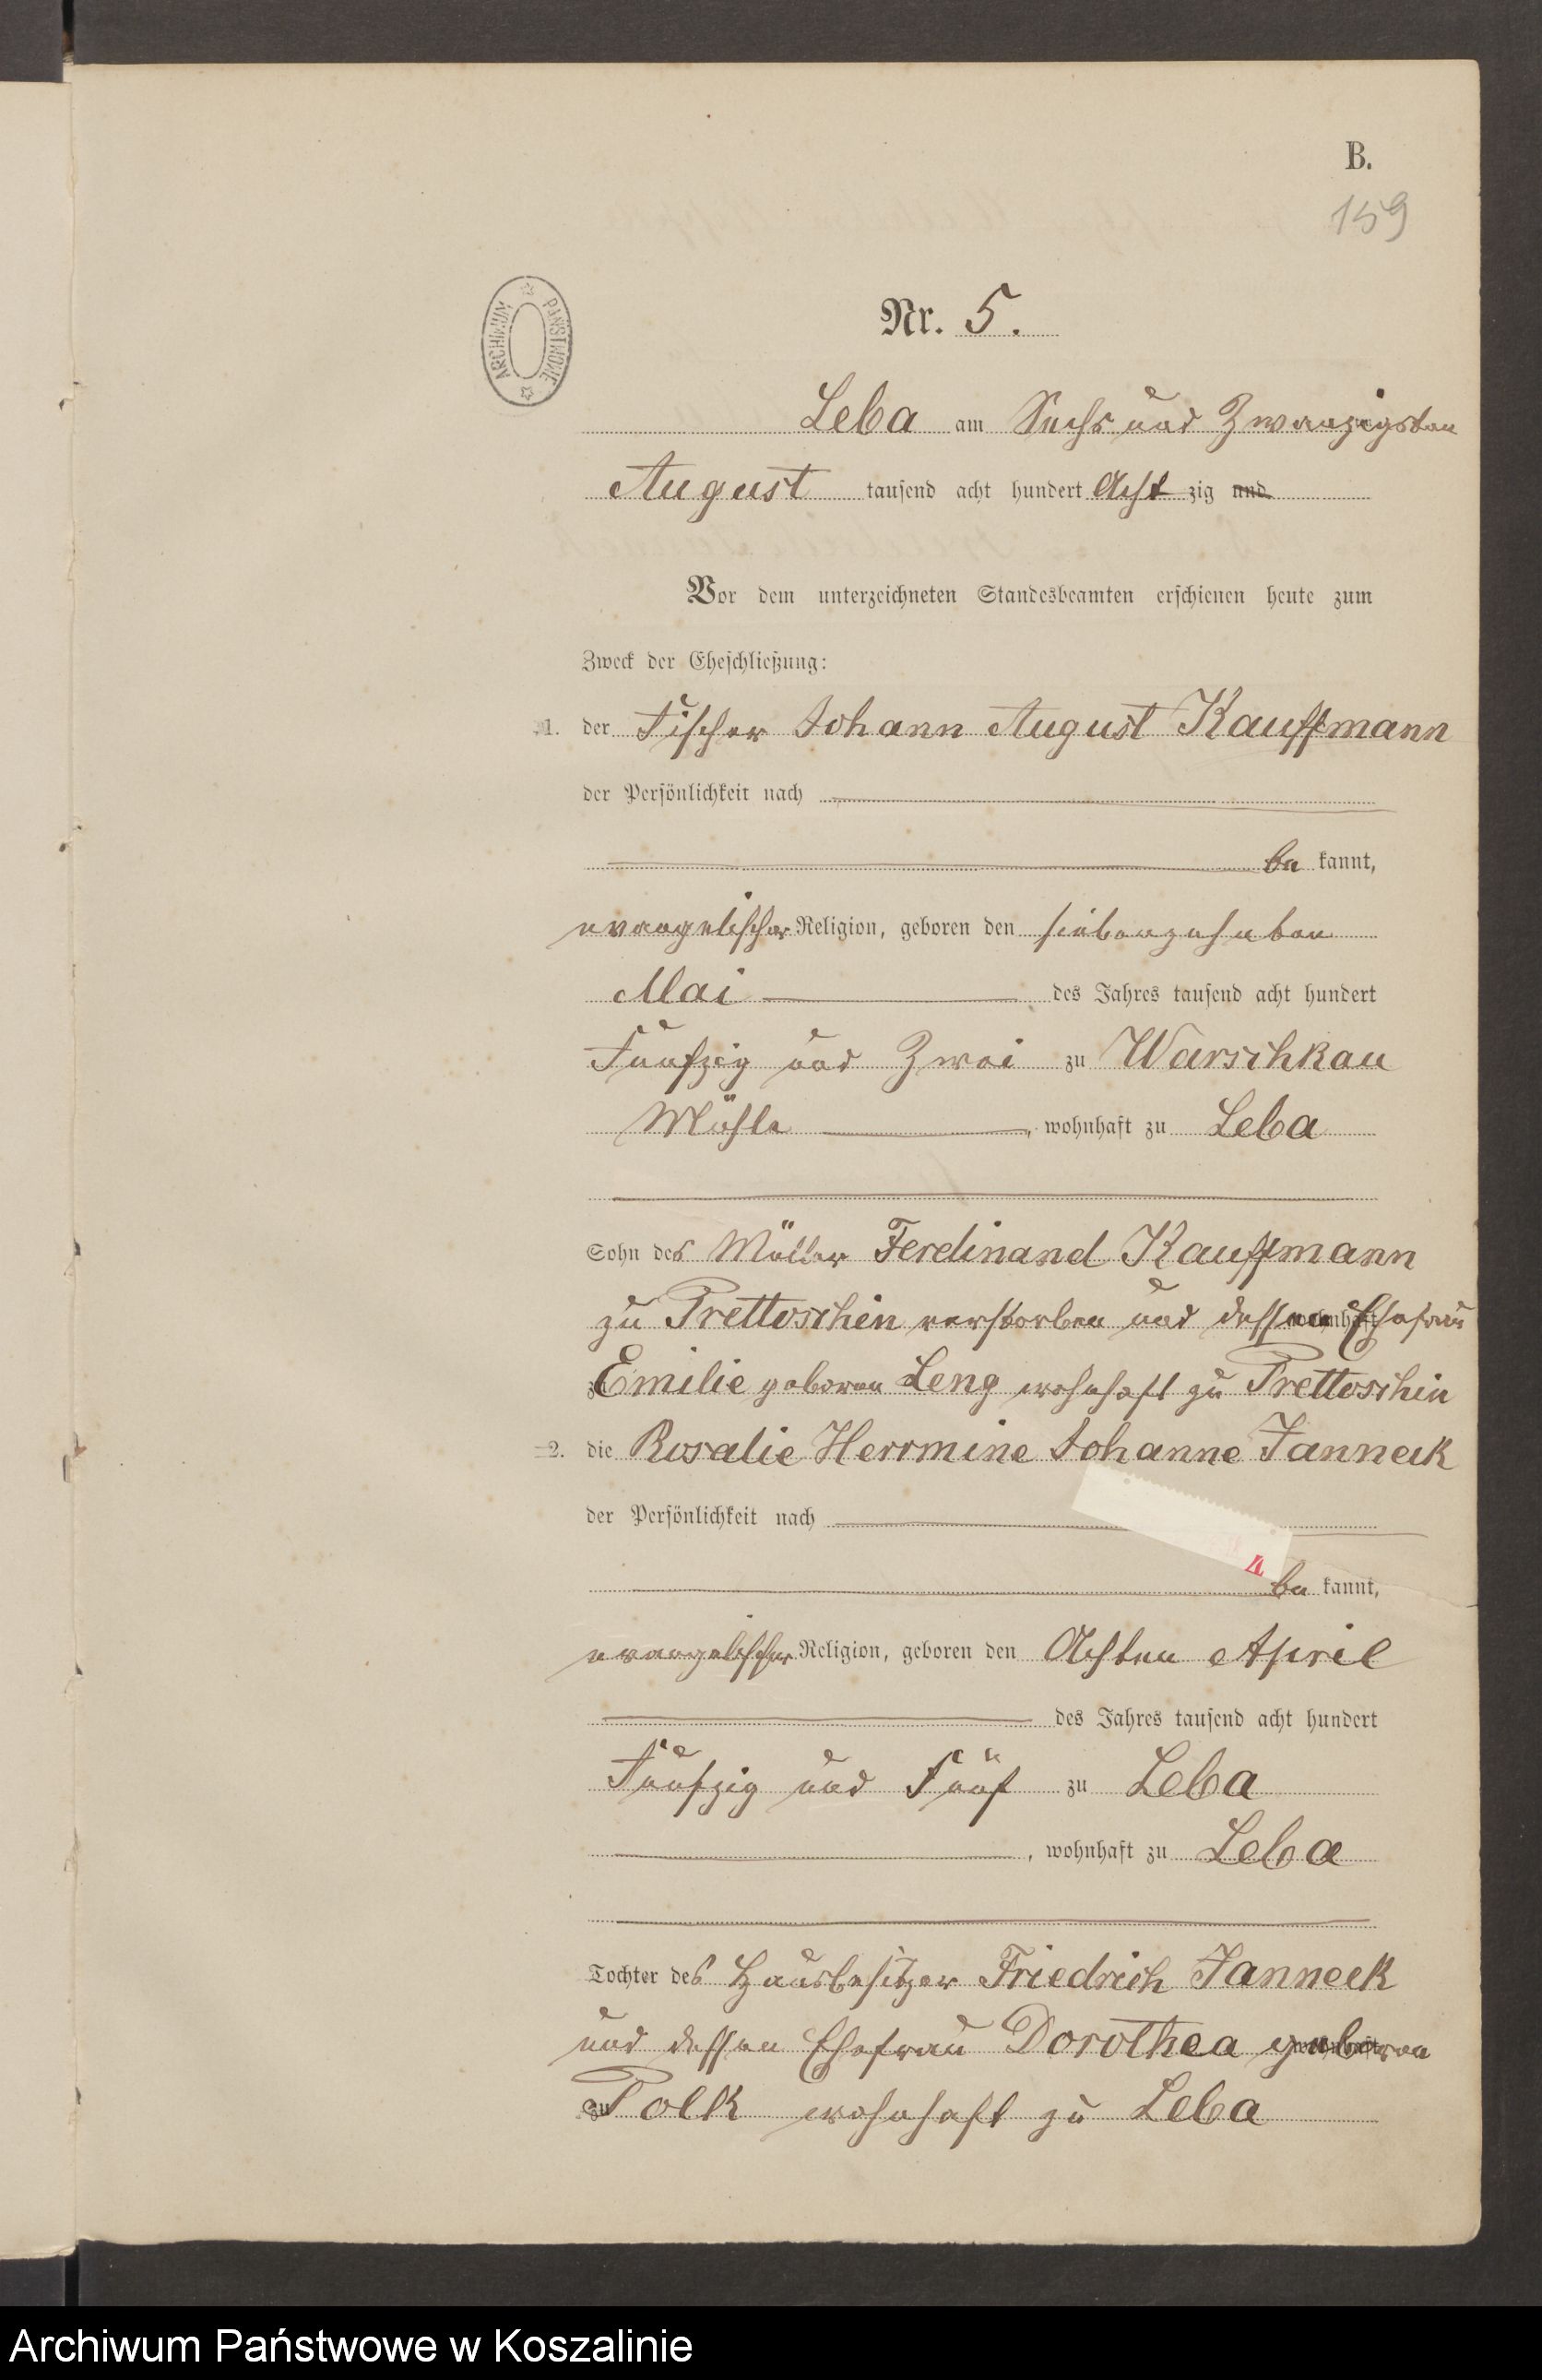 B.
159
Nr. 5.
ARCHIWUM PAŃSTWOWE
Leba am Sechs und Zwanzigsten
August tausend acht hundert Acht zig und
Vor dem unterzeichneten Standesbeamten erschienen heute zum
Zweck der Eheschließung:
1. der Fischer Johann August Kauffmann
der Persönlichkeit nach
be kannt,
evangelischer Religion, geboren den siebenzehnten
Mai des Jahres tausend acht hundert
Fünfzig und Zwei zu Warschkau
Mühle, wohnhaft zu Leba
Sohn des Müller Ferdinand Kauffmann
zu Prettoschin verstorben und dessen Ehefrau
Emilie geboren Leng wohnhaft zu Prettoschin
2. die Rosalie Herrmine Johanne Janneck
der Persönlichkeit nach
4
be kannt,
evangelischer Religion, geboren den Achten April
des Jahres tausend acht hundert
Fünfzig und Fünf zu Leba
, wohnhaft zu Leba
Tochter des Hausbesitzer Friedrich Janneck
und dessen Ehefrau Dorothea geboren
zu Polk wohnhaft zu Leba
Archiwum Państwowe w Koszalinie